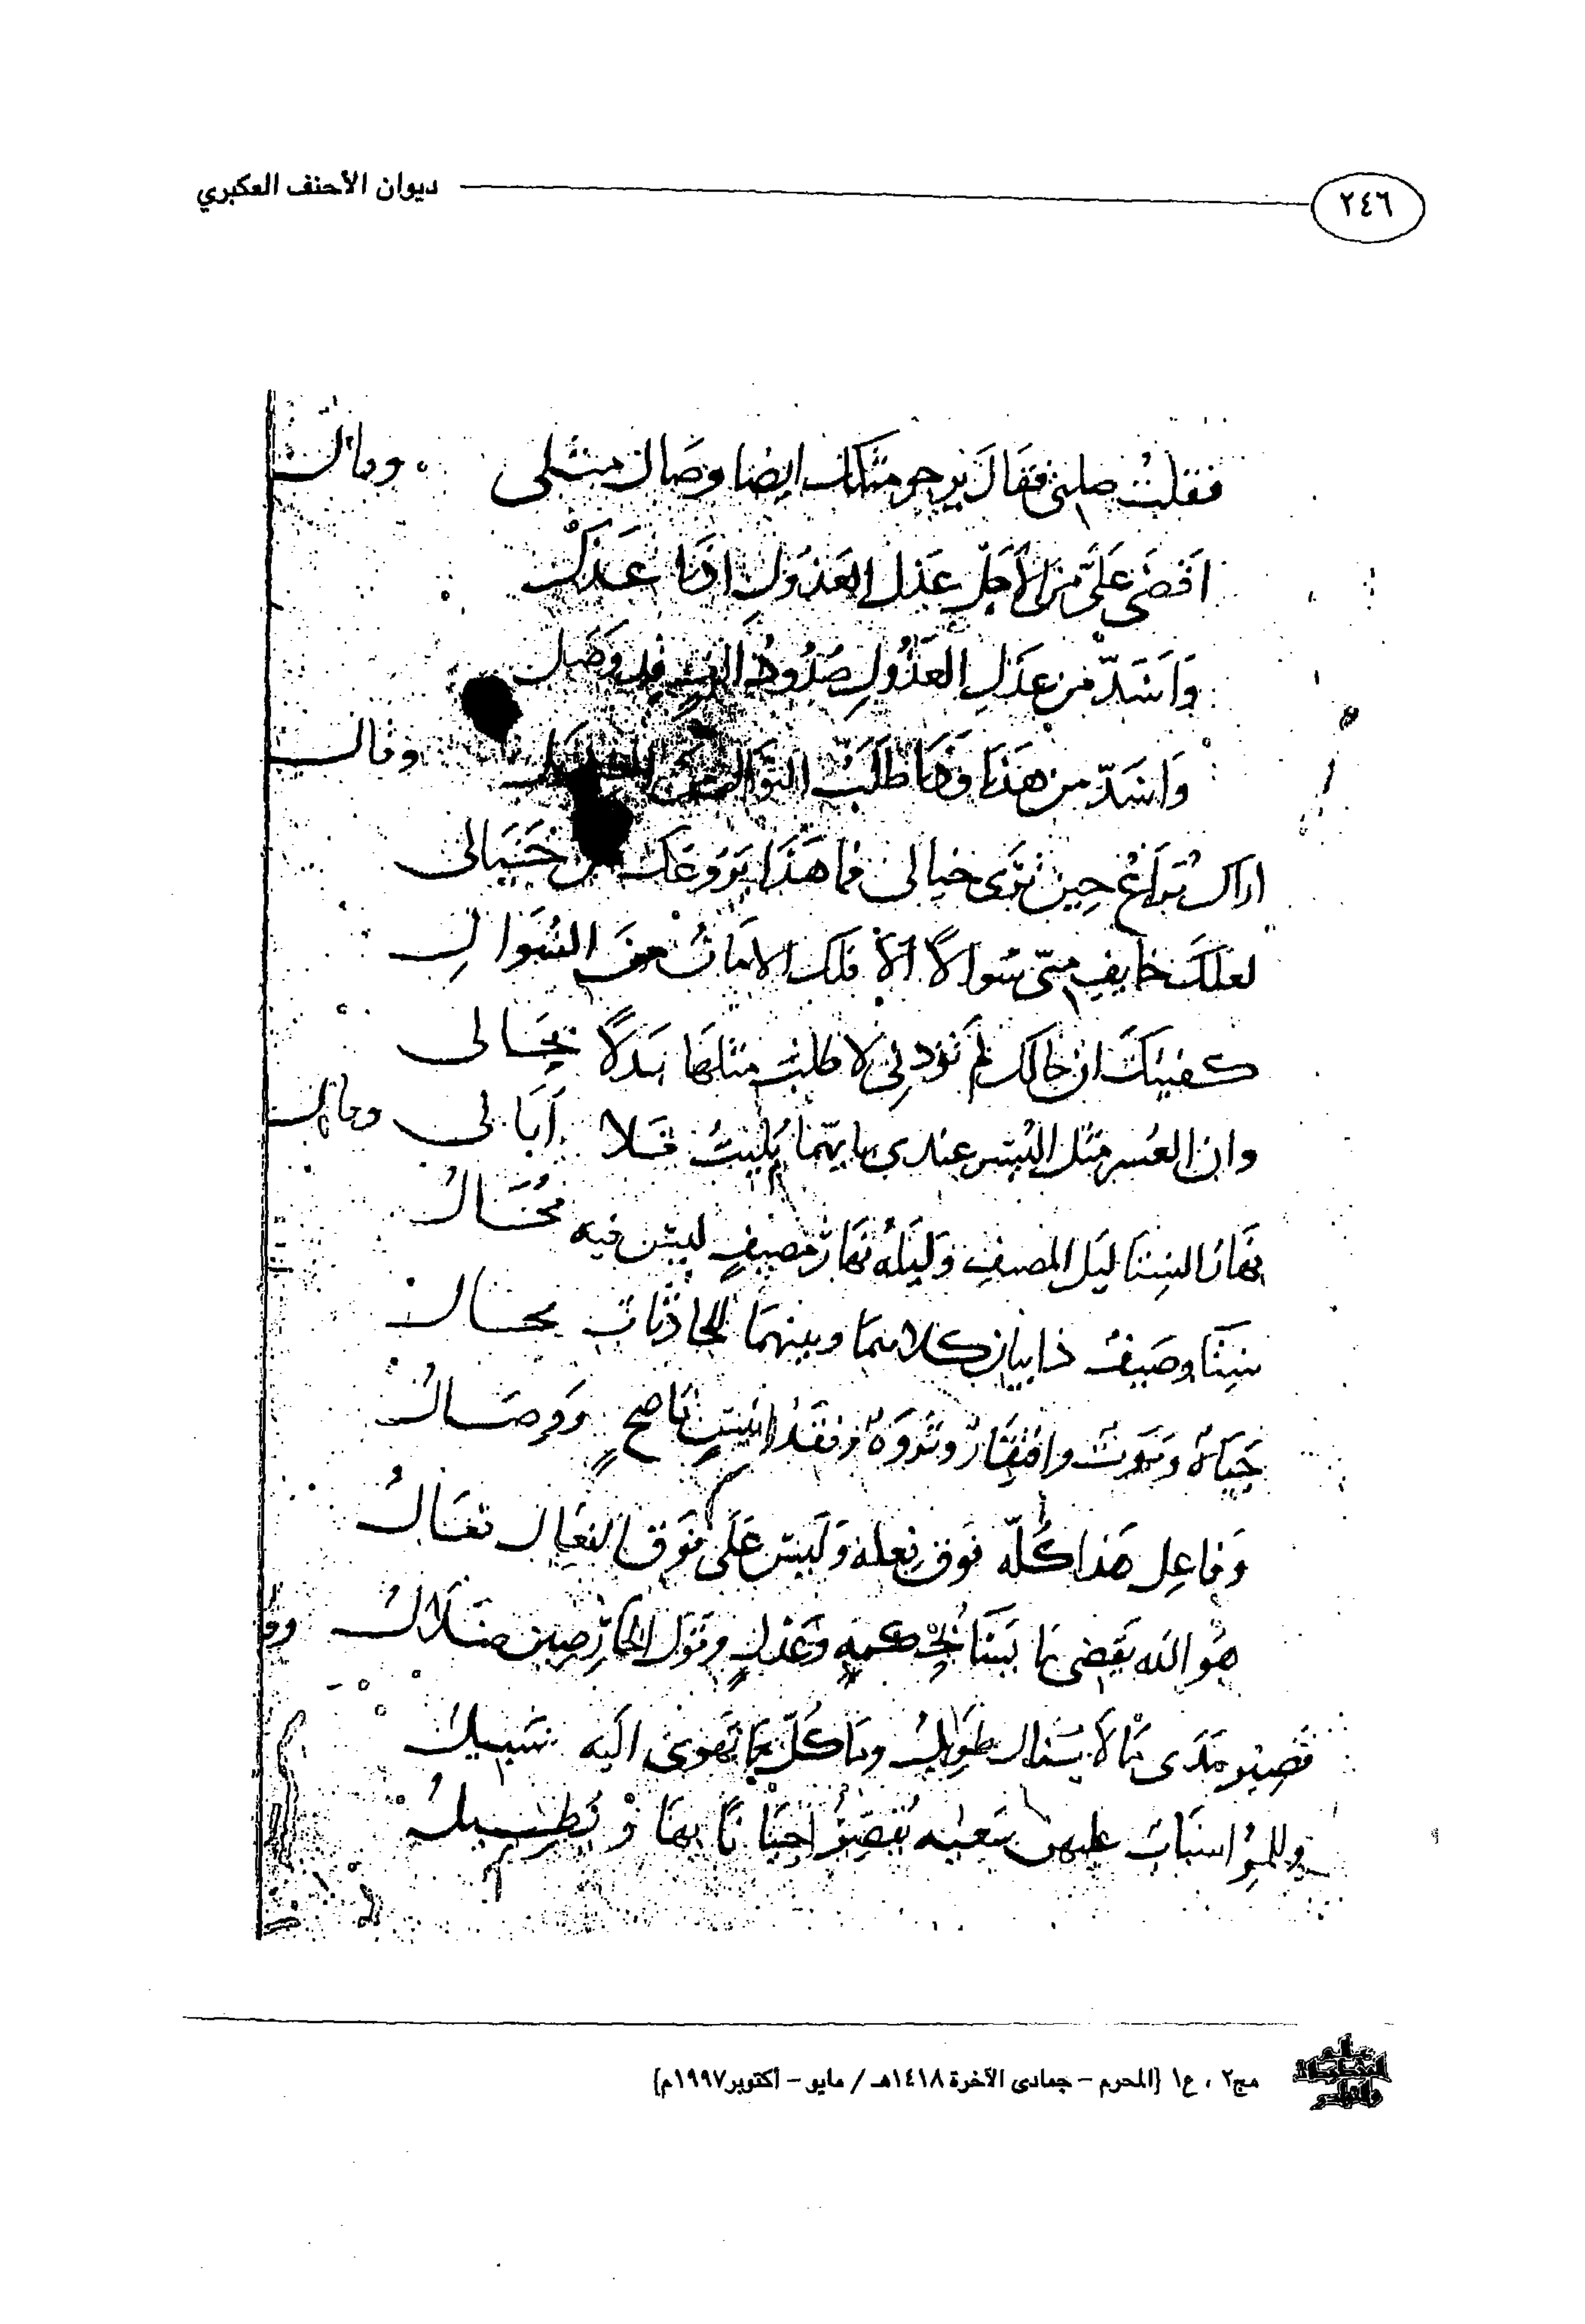 ٢٤٦ ديوان الأحنف العكبري
فقلتُ صلني فقَالَ يرجو مثلك ايضا وصَال مثلى وقال
اقضَى عَلَىَّ من الأجَلِّ عَذل العَذولِ اذا عَذَلْ
وَاشَدّ من عذَلِ العَذُولِ صُدُودُ الفٍ قد وَصَل
وَاشَدّ من هَذَا وَذَا طلَبُ النوَال وقال
اراكَ تُرَاعُ حِين تَرَى خيالى فما هَذَا يَرُوعك من خَيَالى
لعلكَ خايفٍ منّى سُوالاً ألا فلك الامَانُ من السُّوالِ
كفيتكَ ان حَالك لم تَؤدنى لا طلبتُ مثلهَا بَدَلاً بِحَالى
وان العُسر مثل اليُسر عندى بايهّما بُليتُ فَلا أبَالى وقال
نهَار الشِتَا لَيل المصيفِ وَليلُهُ نهَارُ مَصيفٍ ليسَ فيه مُحَالُ
شِتَا وصَيفٌ ذايبان كلاهما وبينهمَا للحادثاتِ مجَالُ
حَيَاةٌ ومَوت وافتِقَارٌ وثروَةٌ وفقدُ انيسٍ ناصحٍ ووصَالُ
وَفاعِل هَذا كُلّه فوق فِعله وَليسَ عَلَى فوَق الفعَال فعَالُ
هُوَ الله يَقضى مَا يَشَا بحُكمهِ وعَدلٍ وقول الخارصين ضَلالُ وقا
قصِير مَدَى مَا لا يُنال طويلُ ومَا كُلّ مَا تهوى اليه سَبيلُ
وللمرُ اسبَاب عليهن سَعيُه تُقصّرُ احيَانًا بهَا وَ تُطِيلُ
مج٢ ، ع١ (المحرم - جمادى الآخرة ١٤١٨هـ / مايو - أكتوبر ١٩٩٧م)